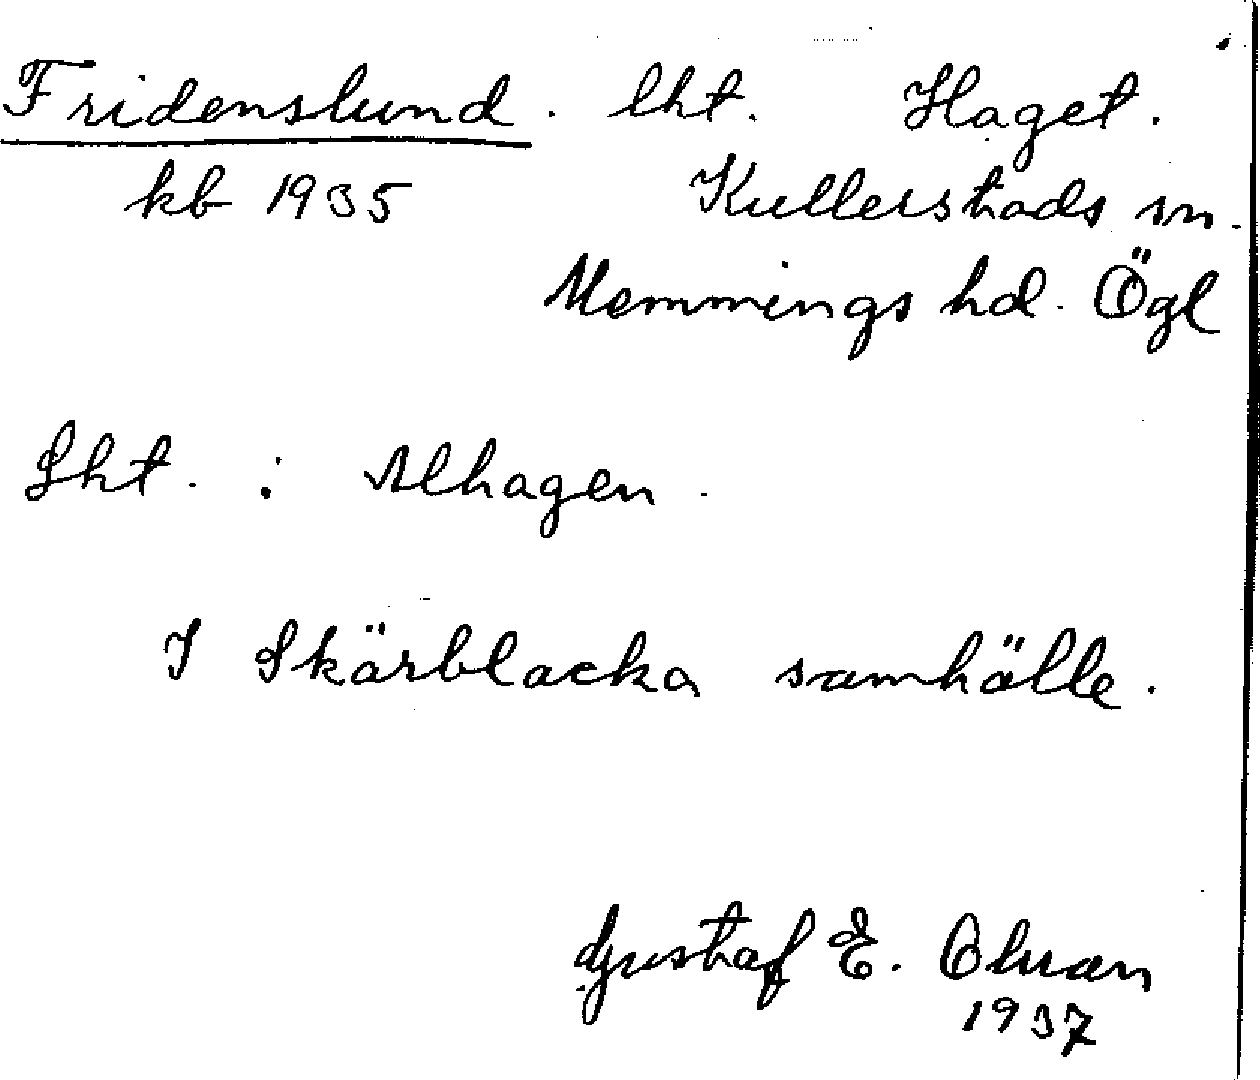 Fridenslund. lht. Haget.
kb 1935 Kullerstads sn.
Memmings hd. Ögl
Lht. : Alhagen.
I Skärblacka samhälle.
Gustaf E. Olsson
1937